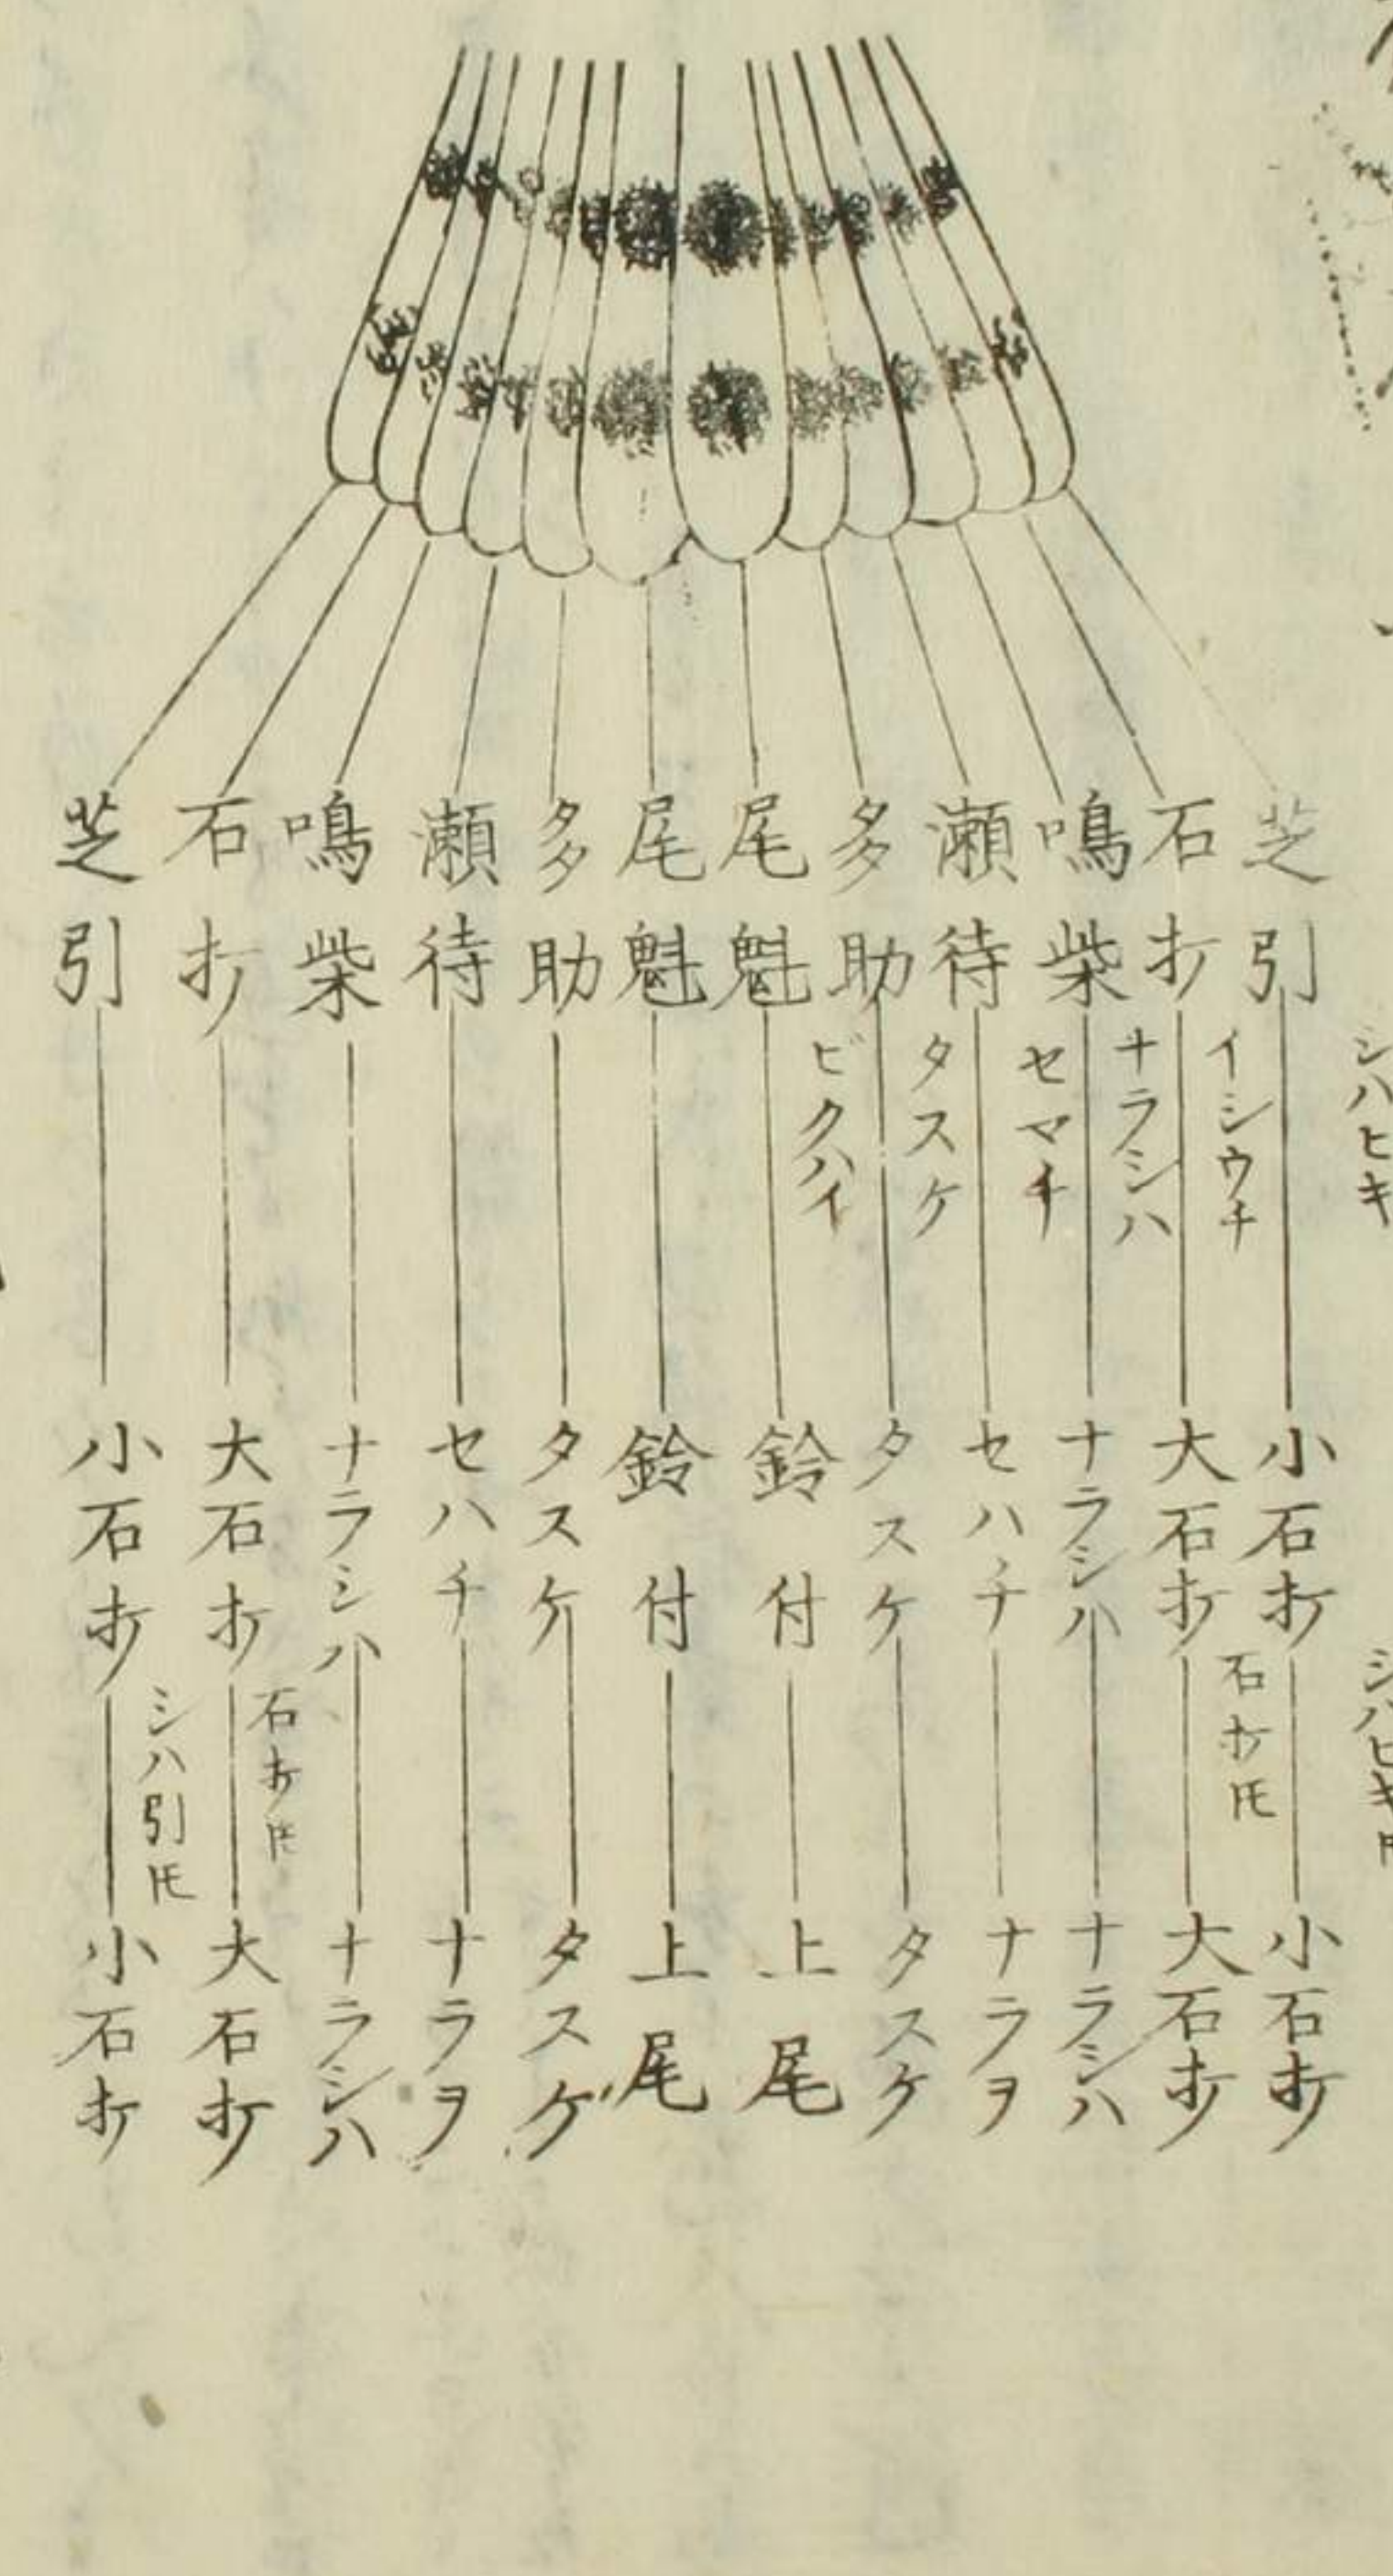 芝引
シハヒキ
小石打
シハヒキ
小石打
石打
イシウチ
大石打
石打𪜈
大石打
鳴柴
ナラシハ
ナラシハ
ナラシハ
瀬待
セマチ
セハチ
ナラヲ
多助
タスケ
タスケ
タスケ
尾魁
ビクハイ
鈴付
上尾
尾魁
鈴付
上尾
多助
タスケ
タスケ
瀬待
セハチ
ナラヲ
鳴柴
ナラシハ
ナラシハ
石打
大石打
石打𪜈
大石打
芝引
小石打
シハ引𪜈
小石打